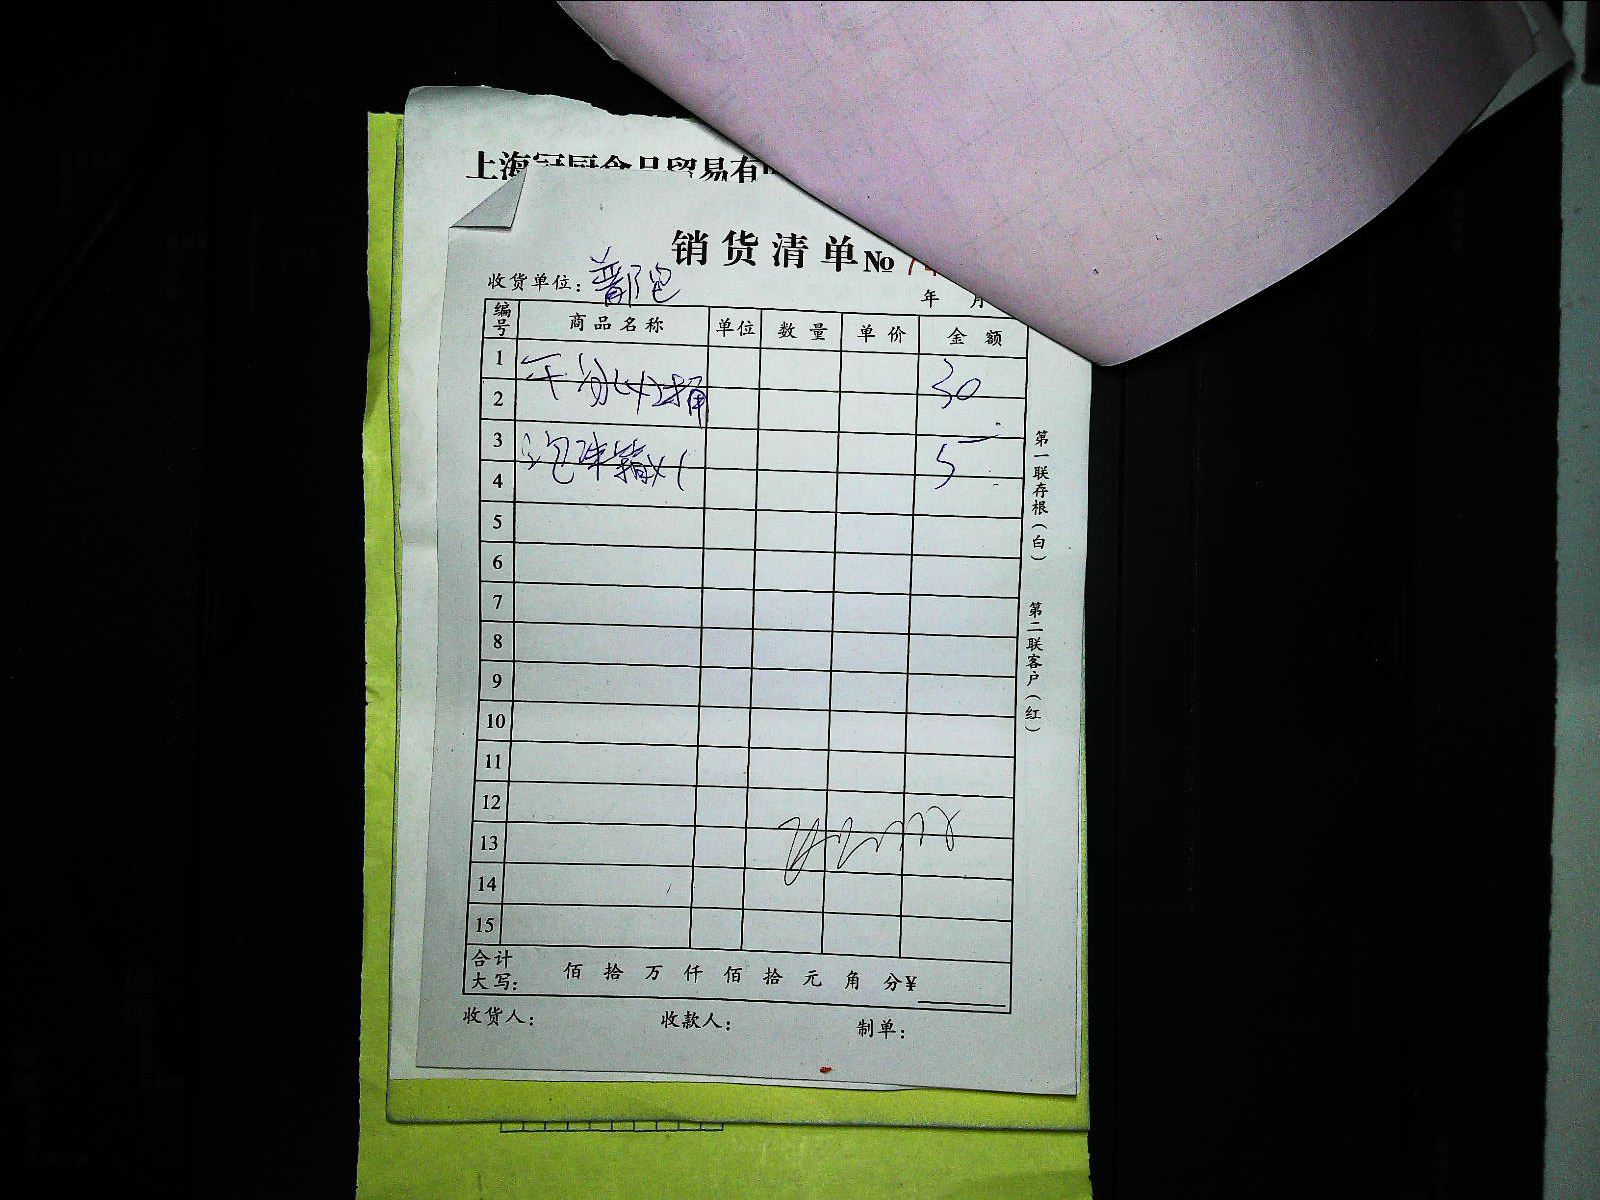 上海冠厨食品贸易有
销货清单 №
收货单位: 普陀
年 月
编号 商品名称 单位 数量 单价 金额
1
30
2
3
5
4
5
6
7
8
9
10
11
12
13
14
15
合计大写: 佰 拾 万 仟 佰 拾 元 角 分 ¥
收货人: 收款人: 制单:
第一联存根(白) 第二联客户(红)